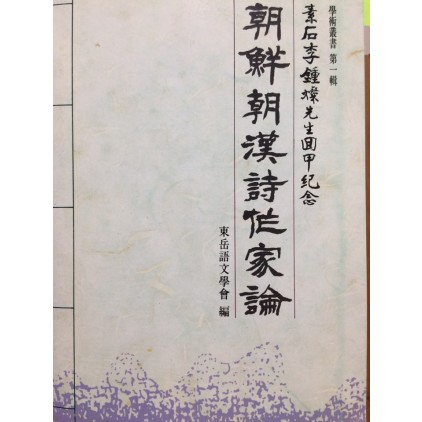 學術叢書 第一輯
素石李鍾燦先生回甲紀念
朝鮮朝漢詩作家論
東岳語文學會 編